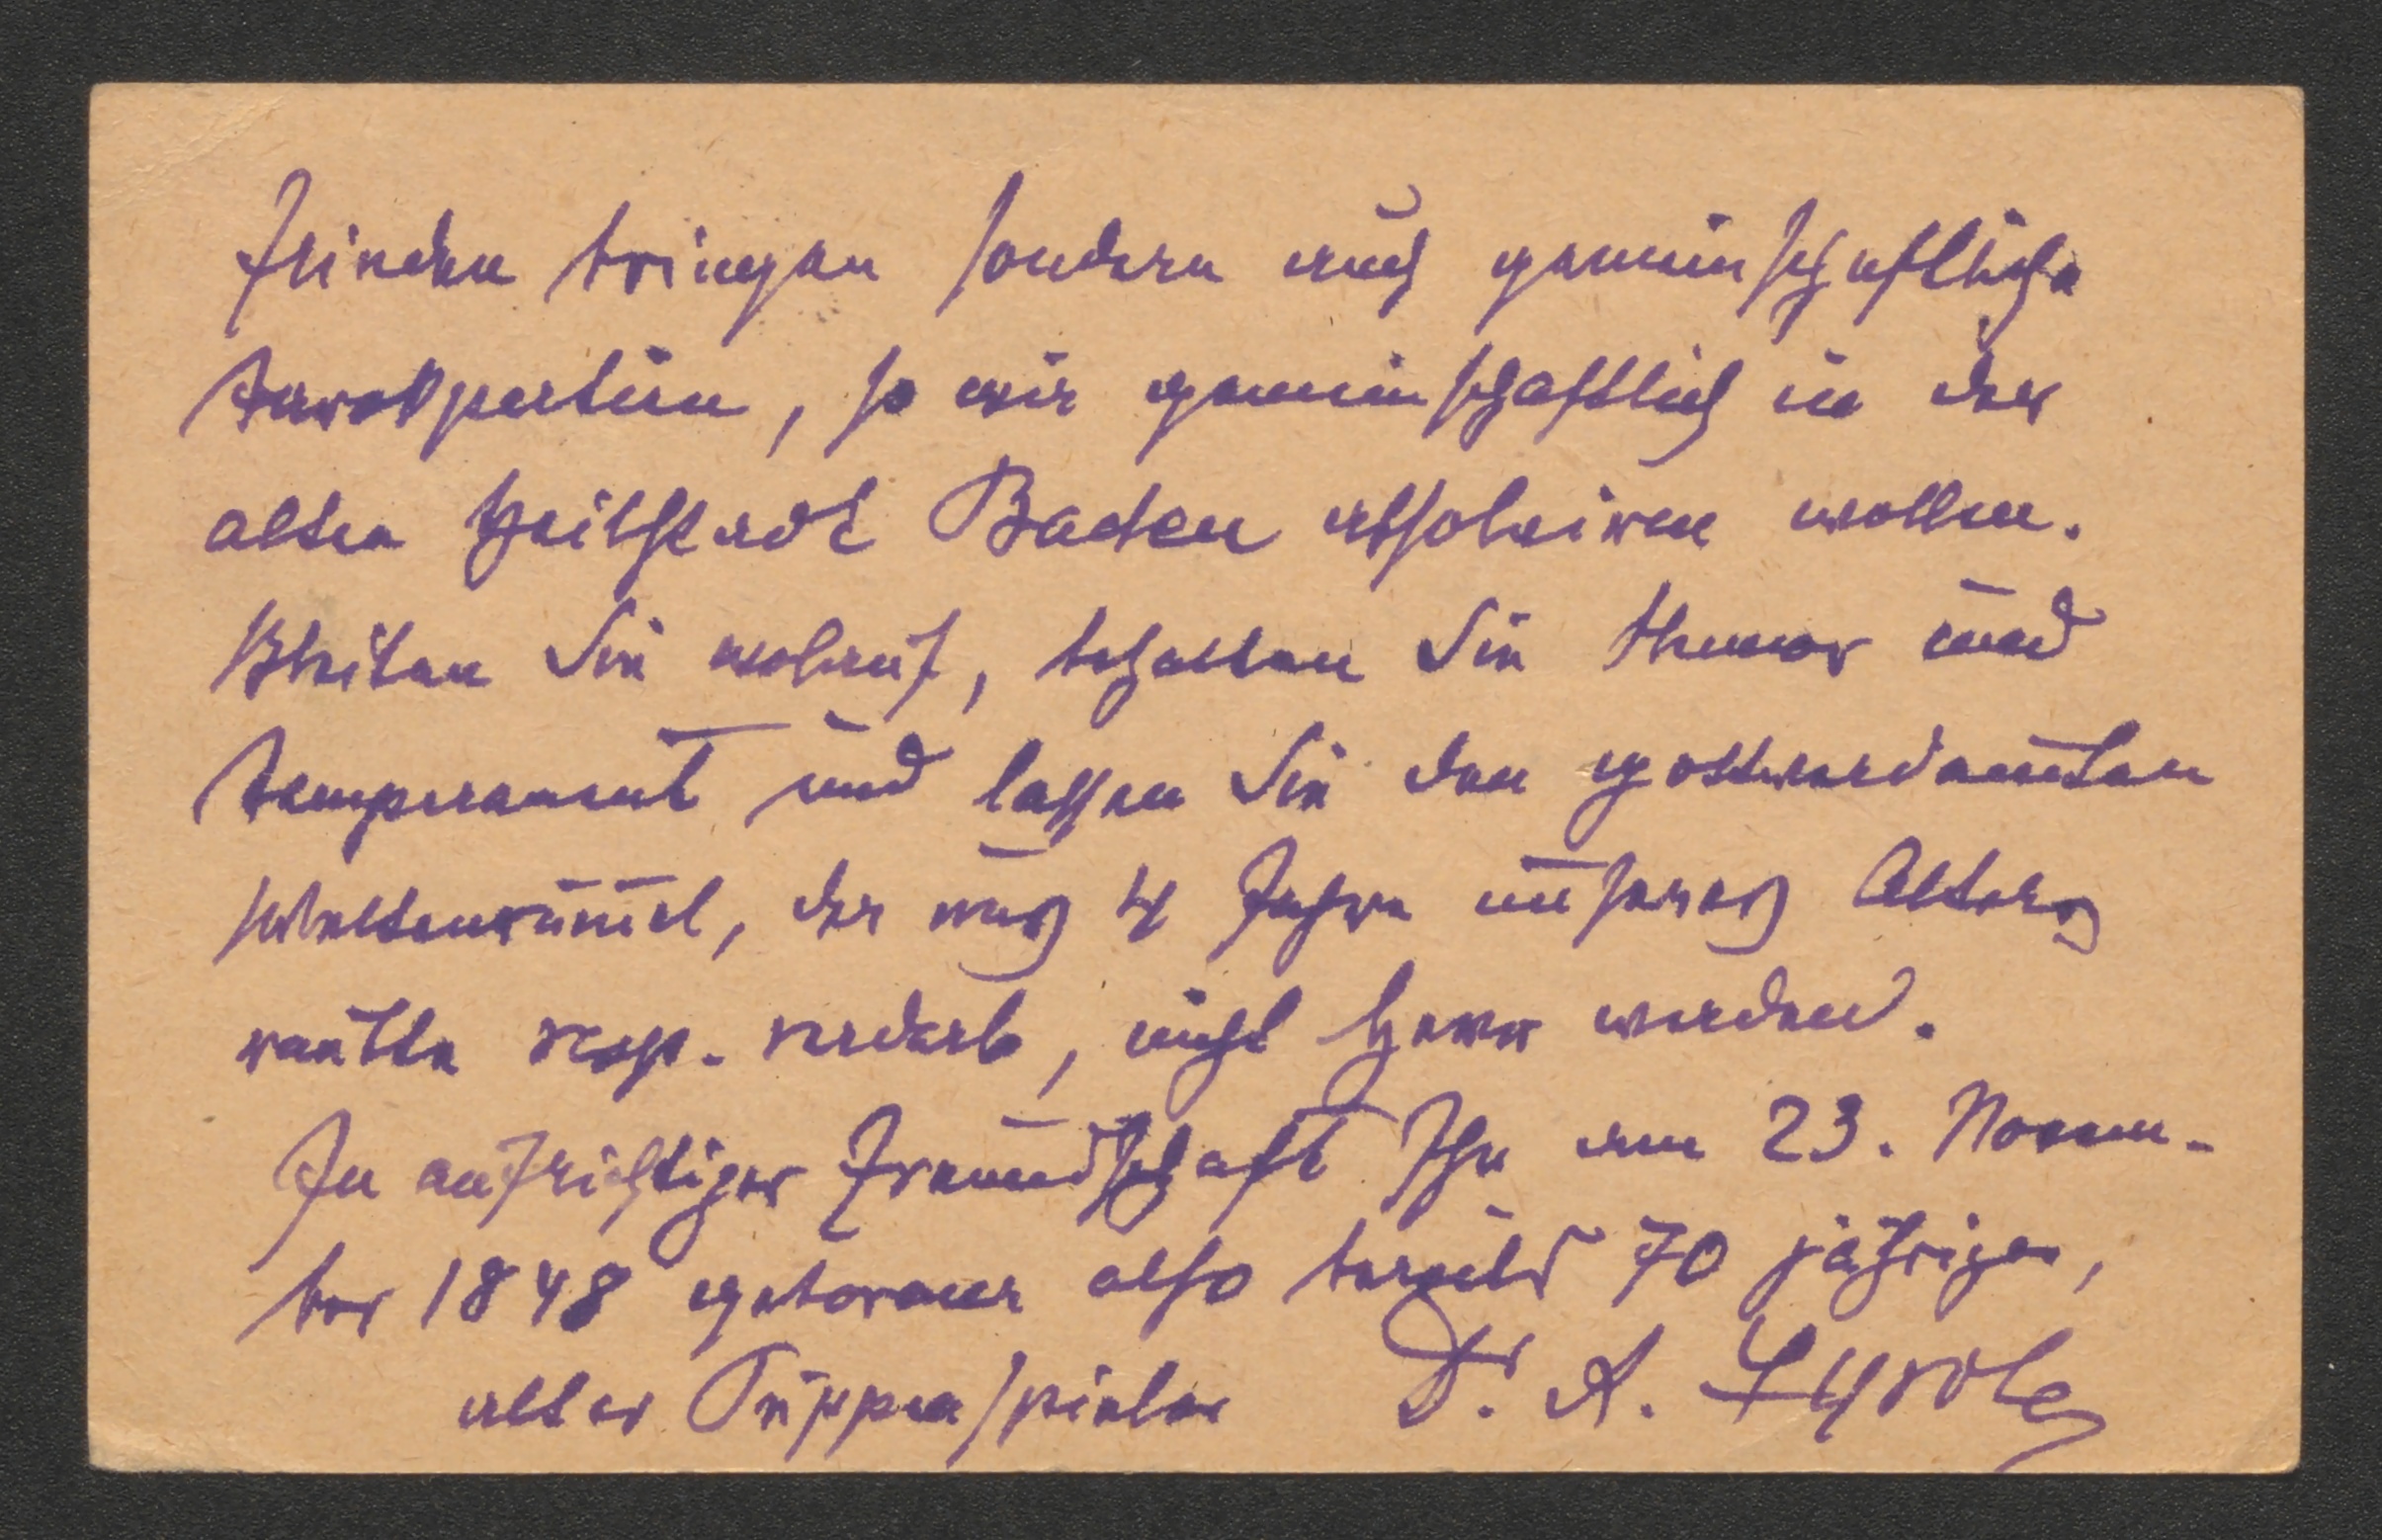 Frieden bringen sondern auch gemeinschaftliche
Tarokpartien, so wir gemeinschaftlich in der
alten Heilstadt Baden absolviren wollen.
Bleiben Sie wohlauf, behalten Sie Humor und
Temperament und lassen Sie den gottverdammten
Weltenrummel, der uns 4 Jahre unseres Alters
raubte resp. verdarb, nicht Herr werden.
In aufrichtiger Freundschaft Ihr am 23. Novem-
ber 1848 geborener also bereits 70 jähriger,
alter Puppenspieler Dr. A.